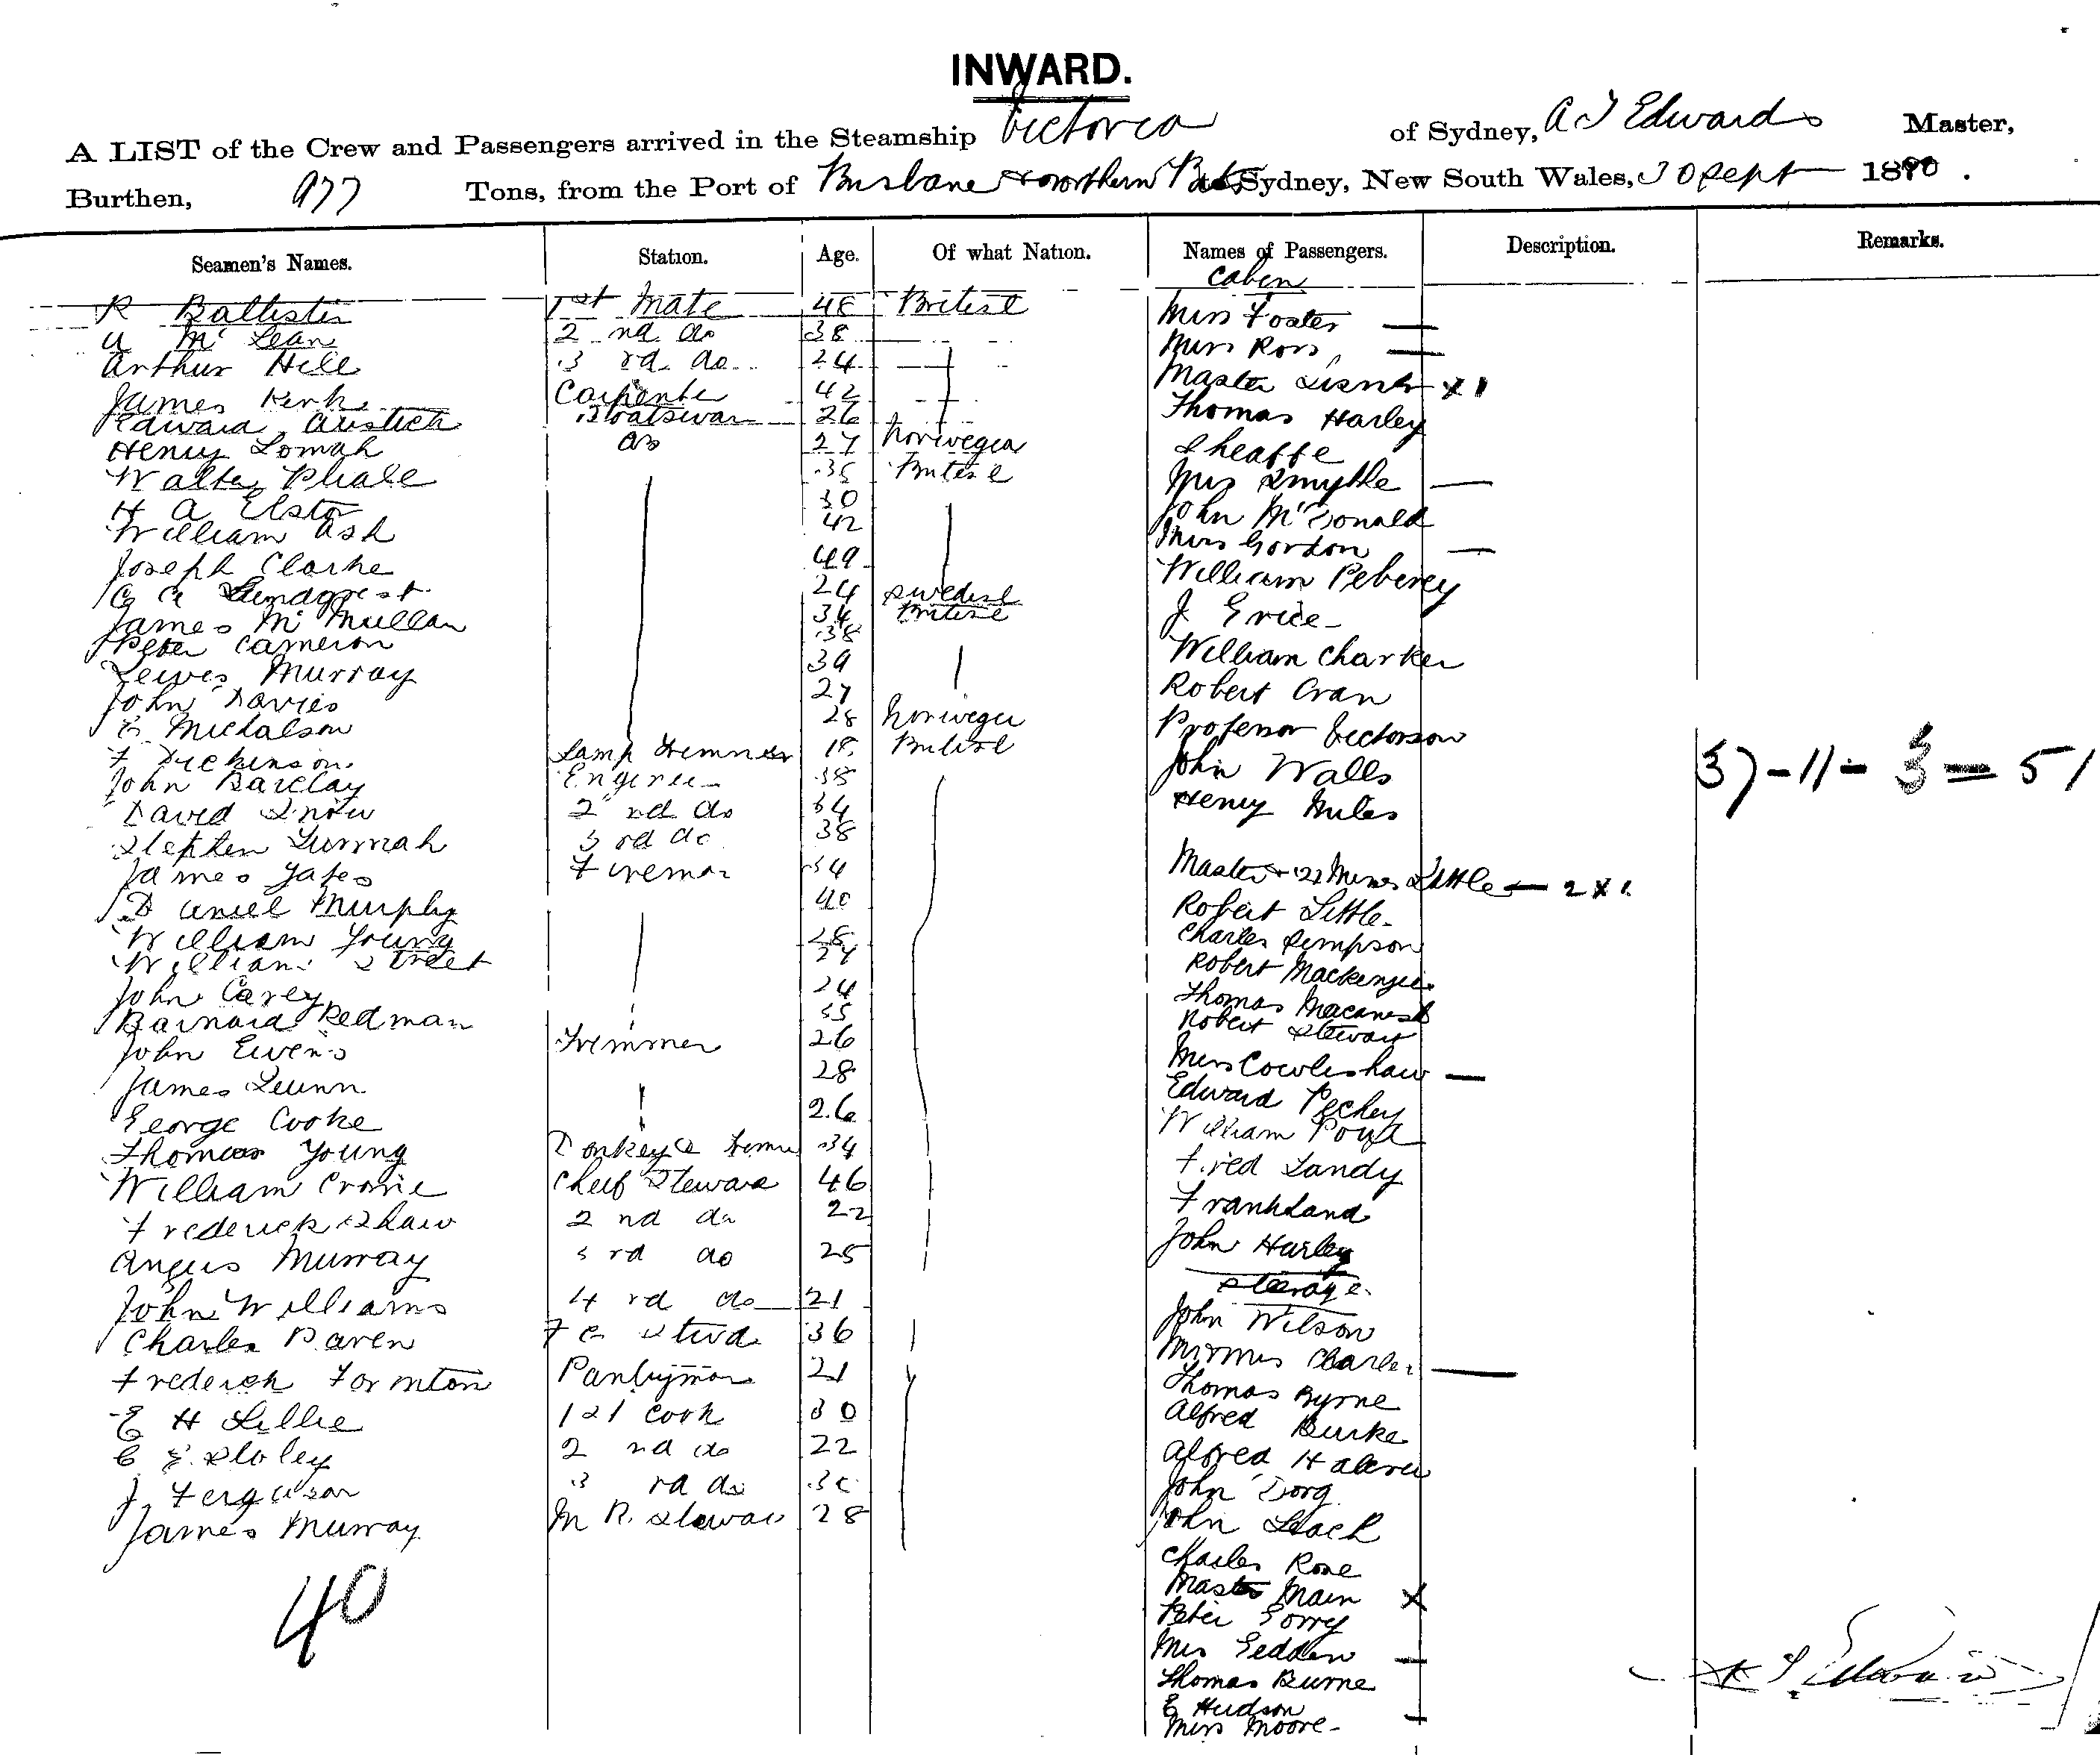 INWARD.
A LIST of the Crew and Passengers arrived in the Steamship Victoria of Sydney, A J Edwards Master,
Burthen, 977 Tons, from the Port of Brisbane & Northern Ports to Sydney, New South Wales, 30 Sept 1890.
Seamen's Names. Station. Age. Of what Nation. Names of Passengers. Description. Remarks.
Cabin
R Ballister 1st Mate 48 British Miss Foster —
A McLean 2nd do 38 Miss Ross —
Arthur Hill 3rd do 24 Master X 1
James Kirk Carpenter 42 Thomas Harley
Edward Boatswain 26
Henry Lomah do 27 Norwegia Sheaffe
Walter Phale 35 British Mrs Smythe —
H A Elston 30 John McDonald
William Ash 42 Mrs Gordon —
Joseph Clarke 49 William Peberey
C A Lindqvest 24 Swedish J Erice
James McMullan 34 British
Peter Cameron 38 William Charker
Lewis Murray 39 Robert Cran
John Davies 27 Professor Victorson
E Michalson 28 Norwegia
F Dickinson 18 Lamp Trimmer British John Walls
John Barclay Engineer 38 Henry Miles
David Snow 2nd do 34
Stephen 3rd do 38
James Yates Fireman 34 Master & (2) Misses Little — 2 X 1
Daniel Murphy 40 Robert Little
William Young 28 Charles Simpson
William Street 27 Robert Mackenzie
John Carey 24 Thomas
Barnard Redman 55 Robert Stewart
John Ewens Trimmer 26 Miss Cowlishaw —
James Quinn 28 Edward Pechey
George Cooke 26 William
Thomas Young Donkey 34 Fred Landy
William Crosie Chief Steward 46 Frankland
Frederick Shaw 2nd do 22 John Harley
Angus Murray 3rd do 25 Steerage
John Williams 4rd do 21 John Wilson
Charles Paven F C Stwd 36 Charles —
Frederick Forinton Pantryman 21 Thomas Byrne
E H Lillie 1st Cook 30 Alfred Burke
C E Sloley 2nd do 22 Alfred
J. Ferguson 3rd do John Dorg
James Murray M R. Steward 28 John Leach
Charles Rose
Master Main X
Peter Gorry
Mrs Gedden —
Thomas Burne
E Hudson
Miss Moore —
40
37 - 11 - 3 = 51
A J Edwards